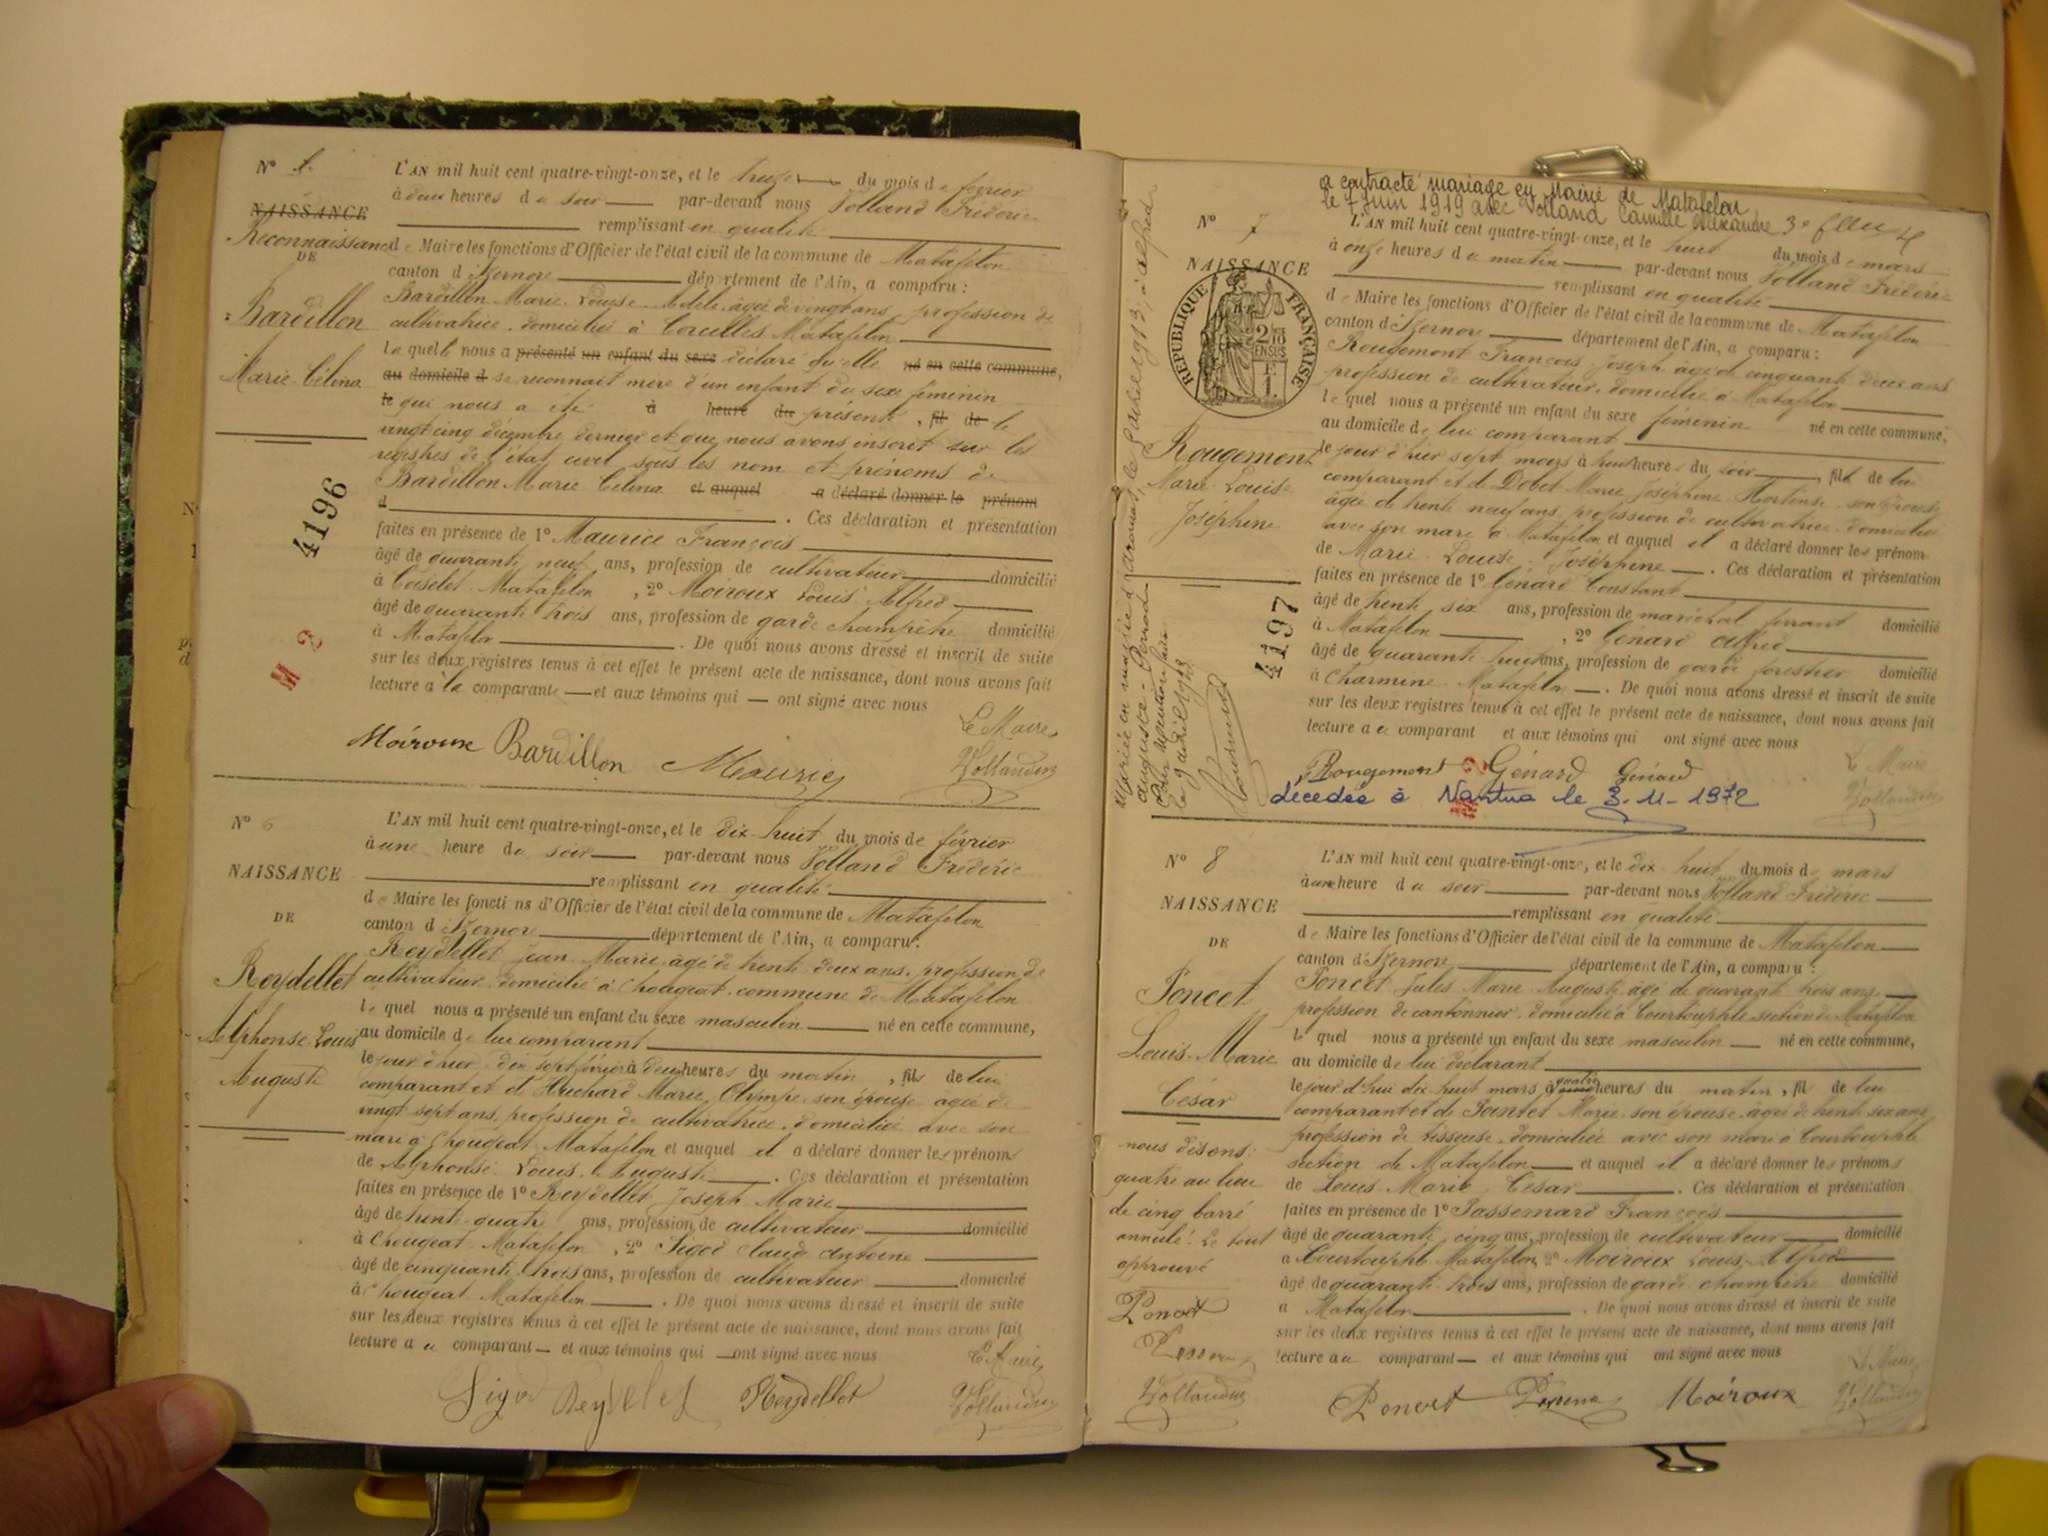 N°
L'AN mil huit cent quatre-vingt-onze, et le treize du mois de février
à deux heures du soir par-devant nous Volland Fréderic
NAISSANCE
remplissant en qualité
Reconnaissance
DE
de Maire les fonctions d'Officier de l'état civil de la commune de Matafelon
canton d'Izernore département de l'Ain, a comparu :
Bardillon Marie Louise Adèle, âgée de vingt ans, profession de
cultivatrice, domiciliée à Corcelles Matafelon
Bardillon
Marie Célina
laquelle nous a présenté un enfant du sexe déclaré qu'elle né en cette commune,
au domicile d se reconnait mère d'un enfant du sexe féminin
le qui nous a été à heure du présenté, fil de le
vingt cinq décembre dernier et que nous avons inscrit sur les
registres de l'état civil sous les nom et prénoms de
Bardillon Marie Célina et auquel a déclaré donner le prénom
d . Ces déclaration et présentation
4196
faites en présence de 1° Maurice François
âgé de quarante neuf ans, profession de cultivateur domicilié
à Coiselet Matafelon, 2° Moiroux Louis Alfred
âgé de quarante trois ans, profession de garde champêtre domicilié
à Matafelon . De quoi nous avons dressé et inscrit de suite
sur les deux registres tenus à cet effet le présent acte de naissance, dont nous avons fait
lecture à la comparante et aux témoins qui ont signé avec nous
M 2
Le Maire
Moiroux Bardillon Maurice Vollandfr
N° 6
L'AN mil huit cent quatre-vingt-onze, et le dix-huit du mois de février
à une heure du soir par-devant nous Volland Fréderic
NAISSANCE
remplissant en qualité
DE
de Maire les fonctions d'Officier de l'état civil de la commune de Matafelon
canton d'Izernore département de l'Ain, a comparu :
Reydellet Jean Marie, âgé de trente deux ans, profession de
Reydellet
cultivateur, domicilié à Chougeat, commune de Matafelon
lequel nous a présenté un enfant du sexe masculin né en cette commune,
Alphonse Louis
Auguste
au domicile de lui comparant
le jour d'hier, dix sept février à deux heures du matin, fils de lui
comparant et d'Huchard Marie Olympe son épouse agée de
vingt sept ans, profession de cultivatrice, domiciliée avec son
mari à Chougeat Matafelon et auquel il a déclaré donner les prénoms
de Alphonse Louis Auguste . Ces déclaration et présentation
faites en présence de 1° Reydellet Joseph Marie
âgé de trente quatre ans, profession de cultivateur domicilié
à Chougeat Matafelon, 2° Sigod Claude Antoine
âgé de cinquante trois ans, profession de cultivateur domicilié
à Chougeat Matafelon . De quoi nous avons dressé et inscrit de suite
sur les deux registres tenus à cet effet le présent acte de naissance, dont nous avons fait
lecture au comparant et aux témoins qui ont signé avec nous
Le Maire
Sigod Reydellet Reydellet Vollandfr
a contracté mariage en Mairie de Matafelon
le 7 Juin 1919 avec Volland Camille Alexandre
N° 7
L'AN mil huit cent quatre-vingt-onze, et le huit du mois de mars
à onze heures du matin par-devant nous Volland Fréderic
NAISSANCE
remplissant en qualité
RÉPUBLIQUE FRANÇAISE
de Maire les fonctions d'Officier de l'état civil de la commune de Matafelon
canton d'Izernore département de l'Ain, a comparu :
Rougemont François Joseph âgé de cinquante deux ans
profession de cultivateur, domicilié à Matafelon
lequel nous a présenté un enfant du sexe féminin né en cette commune,
au domicile de lui comparant
Rougemont
Marie Louise
Joséphine
le jour d'hier sept mars à huit heures du soir, fille de lui
comparant et d Marie Joséphine Hortense son épouse
âgée de trente neuf ans, profession de cultivatrice, domiciliée
avec son mari à Matafelon et auquel il a déclaré donner les prénom
de Marie Louise Joséphine . Ces déclaration et présentation
faites en présence de 1° Génard Constant
âgé de trente six ans, profession de maréchal ferrant domicilié
à Matafelon, 2° Génard Alfred
âgé de quarante huit ans, profession de garde forestier domicilié
à Charmine Matafelon . De quoi nous avons dressé et inscrit de suite
sur les deux registres tenus à cet effet le présent acte de naissance, dont nous avons fait
lecture au comparant et aux témoins qui ont signé avec nous
4197
Le Maire
Rougemont Génard Génard Vollandfr
décédée à Nantua le 3-11-1972
N° 8
L'AN mil huit cent quatre-vingt-onze, et le dix huit du mois de mars
à une heure du soir par-devant nous Volland Fréderic
NAISSANCE
remplissant en qualité
DE
de Maire les fonctions d'Officier de l'état civil de la commune de Matafelon
canton d'Izernore département de l'Ain, a comparu :
Poncet Jules Marie Auguste âgé de quarante trois ans
Poncet
profession de cantonnier, domicilié à Courtouphle section de Matafelon
lequel nous a présenté un enfant du sexe masculin né en cette commune,
Louis Marie
César
au domicile de lui déclarant
le jour d'hui dix huit mars à quatre heures du matin, fil de lui
comparant et de Marie son épouse, agée de trente six ans
profession de tisseuse, domiciliée avec son mari à Courtouphle
section de Matafelon et auquel il a déclaré donner les prénoms
de Louis Marie César . Ces déclaration et présentation
nous disons:
quatre au lieu
de cinq barré
annulé. Le tout
approuvé
Poncet
Vollandfr
faites en présence de 1° Passemard François
âgé de quarante cinq ans, profession de cultivateur domicilié
à Courtouphle Matafelon, 2° Moiroux Louis Alfred
âgé de quarante trois ans, profession de garde champêtre domicilié
à Matafelon . De quoi nous avons dressé et inscrit de suite
sur les deux registres tenus à cet effet le présent acte de naissance, dont nous avons fait
lecture au comparant et aux témoins qui ont signé avec nous
Le Maire
Poncet Moiroux Vollandfr